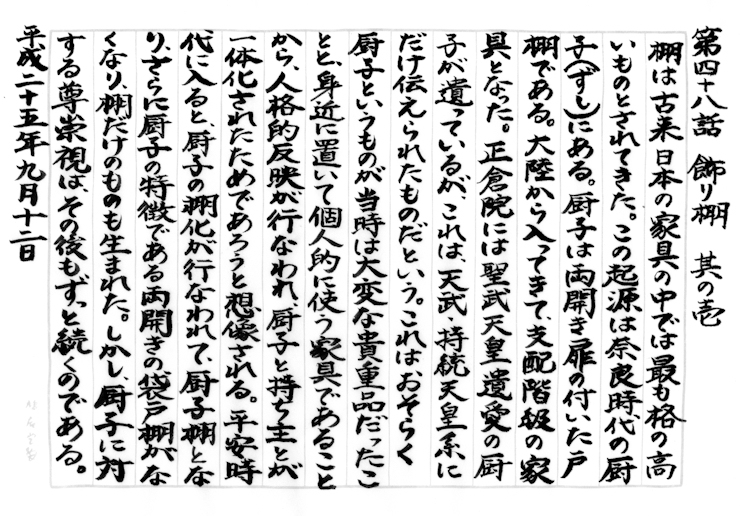 第四十八話 飾り棚 其の壱
棚は古来日本の家具の中では最も格の高
いものとされてきた。この起源は奈良時代の厨
子(ずし)にある。厨子は両開き扉の付いた戸
棚である。大陸から入ってきて、支配階級の家
具となった。正倉院には聖武天皇遺愛の厨
子が遺っているが、これは、天武・持統天皇系に
だけ伝えられたものだという。これはおそらく
厨子というものが当時は大変な貴重品だったこ
とと、身近に置いて個人的に使う家具であること
から、人格的反映が行なわれ、厨子と持ち主とが
一体化されたためであろうと想像される。平安時
代に入ると、厨子の棚化が行なわれて、厨子棚とな
り、さらに厨子の特徴である両開きの袋戸棚がな
くなり、棚だけのものも生まれた。しかし、厨子に対
する尊崇視は、その後もずっと続くのである。
平成二十五年九月十二日